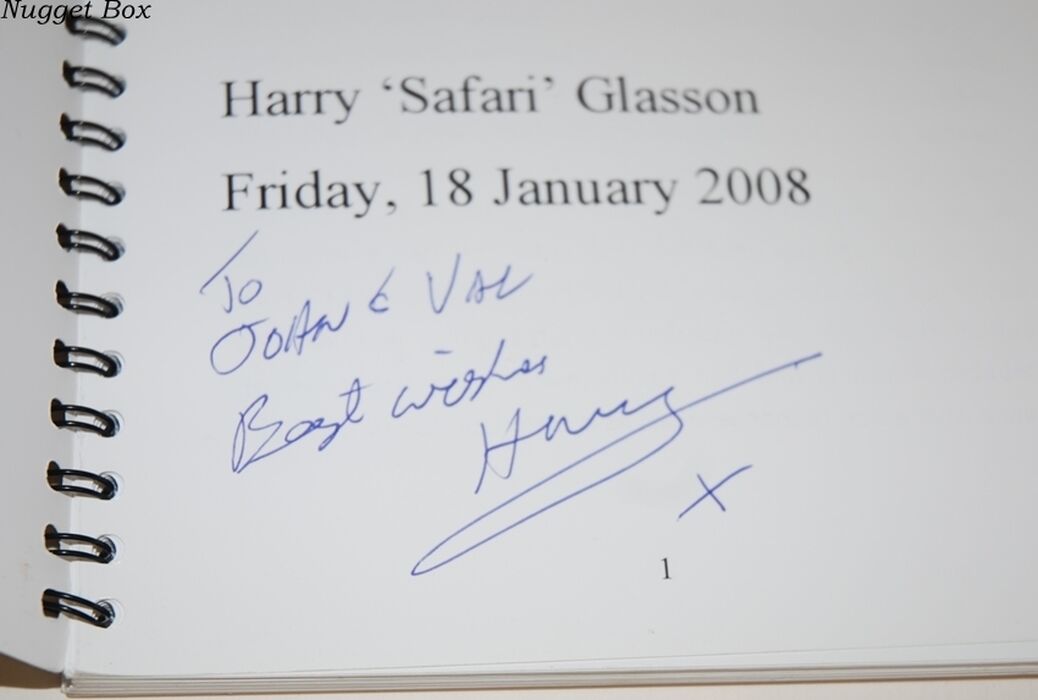 Nugget Box
Harry ‘Safari’ Glasson
Friday, 18 January 2008
To
JOHN & VAL
Best wishes
Harry
X
1